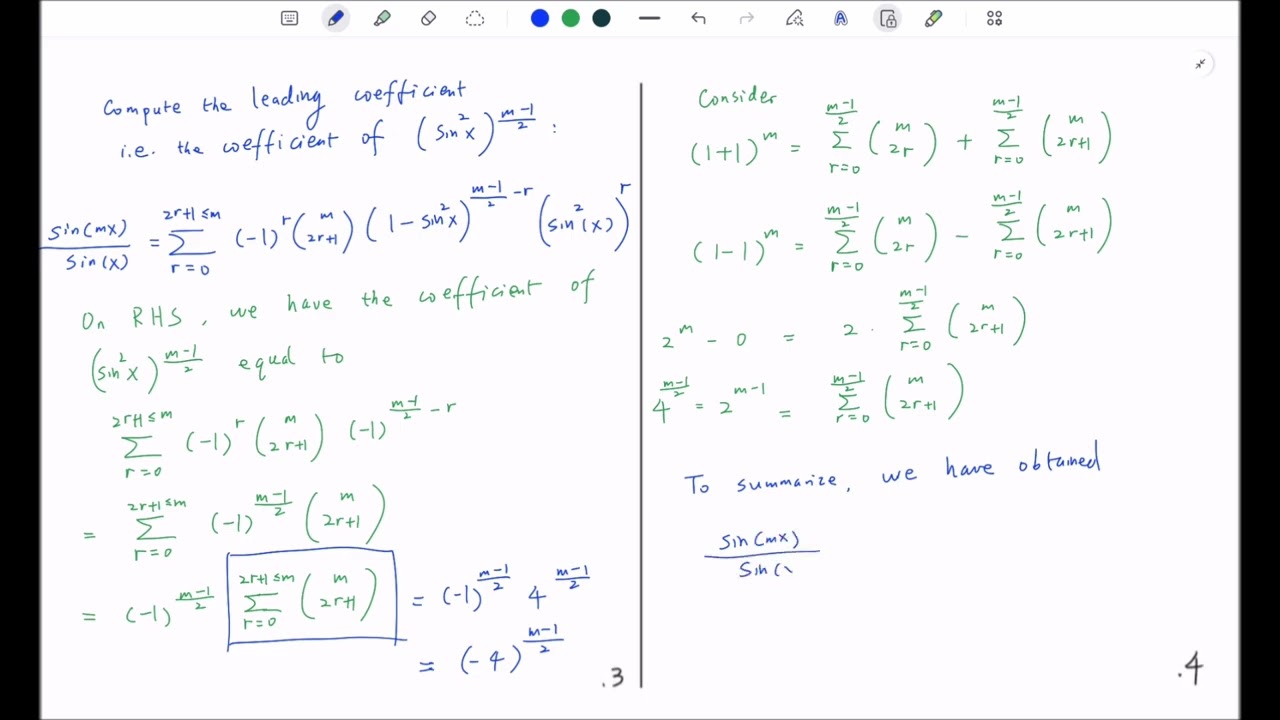 Compute the leading coefficient
i.e. the coefficient of (sin²x)^{\frac{m-1}{2}} :
\frac{sin(mx)}{sin(x)} = \sum_{r=0}^{2r+1≤m} (-1)^r \binom{m}{2r+1} (1-sin²x)^{\frac{m-1}{2}-r} (sin²(x))^r
On RHS, we have the coefficient of
(sin²x)^{\frac{m-1}{2}} equal to
\sum_{r=0}^{2r+1≤m} (-1)^r \binom{m}{2r+1} (-1)^{\frac{m-1}{2}-r}
= \sum_{r=0}^{2r+1≤m} (-1)^{\frac{m-1}{2}} \binom{m}{2r+1}
= (-1)^{\frac{m-1}{2}} \sum_{r=0}^{2r+1≤m} \binom{m}{2r+1} = (-1)^{\frac{m-1}{2}} 4^{\frac{m-1}{2}}
= (-4)^{\frac{m-1}{2}}
.3
Consider
(1+1)^m = \sum_{r=0}^{\frac{m-1}{2}} \binom{m}{2r} + \sum_{r=0}^{\frac{m-1}{2}} \binom{m}{2r+1}
(1-1)^m = \sum_{r=0}^{\frac{m-1}{2}} \binom{m}{2r} - \sum_{r=0}^{\frac{m-1}{2}} \binom{m}{2r+1}
2^m - 0 = 2 · \sum_{r=0}^{\frac{m-1}{2}} \binom{m}{2r+1}
4^{\frac{m-1}{2}} = 2^{m-1} = \sum_{r=0}^{\frac{m-1}{2}} \binom{m}{2r+1}
To summarize, we have obtained
\frac{sin(mx)}{sin(}
.4